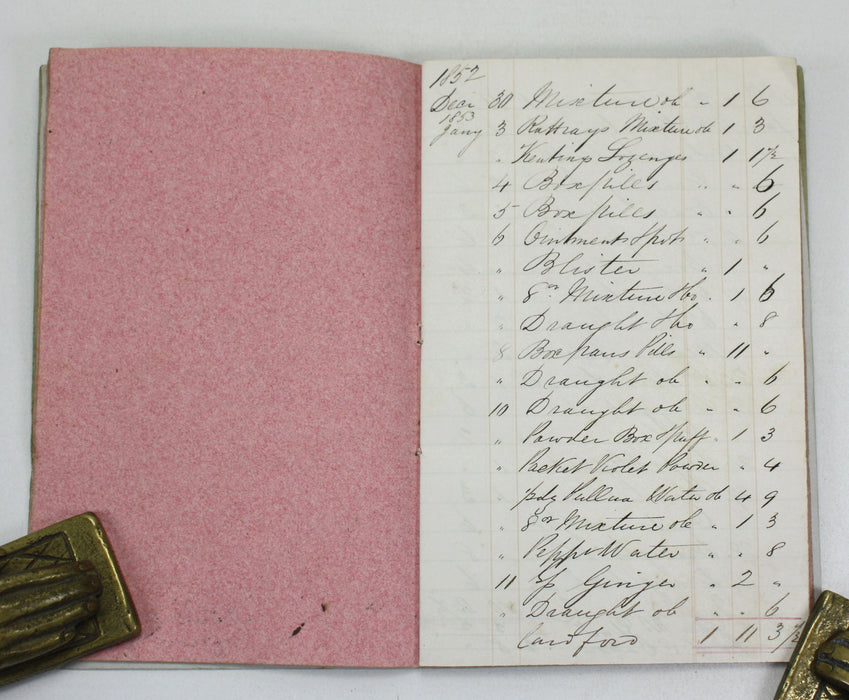 1852
Decr 30 Mixture ob " 1 6
1853
Jany 3 Rattrays Mixture ob 1 3
" Keatings Lozenges 1 1½
4 Box pills " " 6
5 Box pills " " 6
6 Ointment & pots " " 6
" Blister " 1 "
" 8oz Mixture " 1 6
" Draught " 8
8 Box pills " 11 "
" Draught ob " " 6
10 Draught ob " " 6
" Powder Box & Puff " 1 3
" Packet Violet Powder " 4
Water ob 4 9
" 8oz Mixture ob " 1 3
" Pepp Water " " 8
11 Ginger " 2 "
" Draught ob " " 6
Card ford 1 11 3½